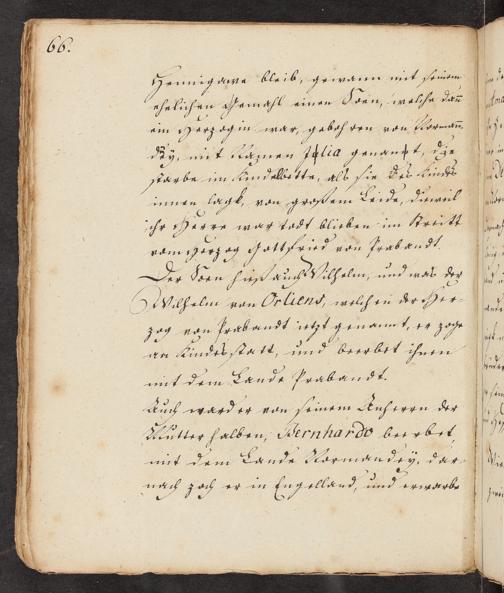 66.
Hennigawe bleib, gewann mit seinem
ehelichen Gemahl einen Soen, welche dann
ein Herzogin war, gebohren von Norman-
dey, mit Namen Julia genannt, die
starbe im Kindelbette, als sie des Kinds
innen lagk, von großem Leide, dieweil
ihr Herre war todt blieben im Streitt
vom Herzog Gottfried von Prabandt.
Der Soen hieß auch Wilhelm, und was der
Wilhelm von Orliens, welchen der Her-
zog von Prabandt ietzt genannt, er zoge
an Kindes statt, und beerbet ihnen
mit dem Lande Prabandt.
Auch ward er von seinem Anherrn der
Mutter halben, Bernhardo beerbet,
mit dem Lande Normandey, dar-
nach zoch er in Engelland, und erwarbe